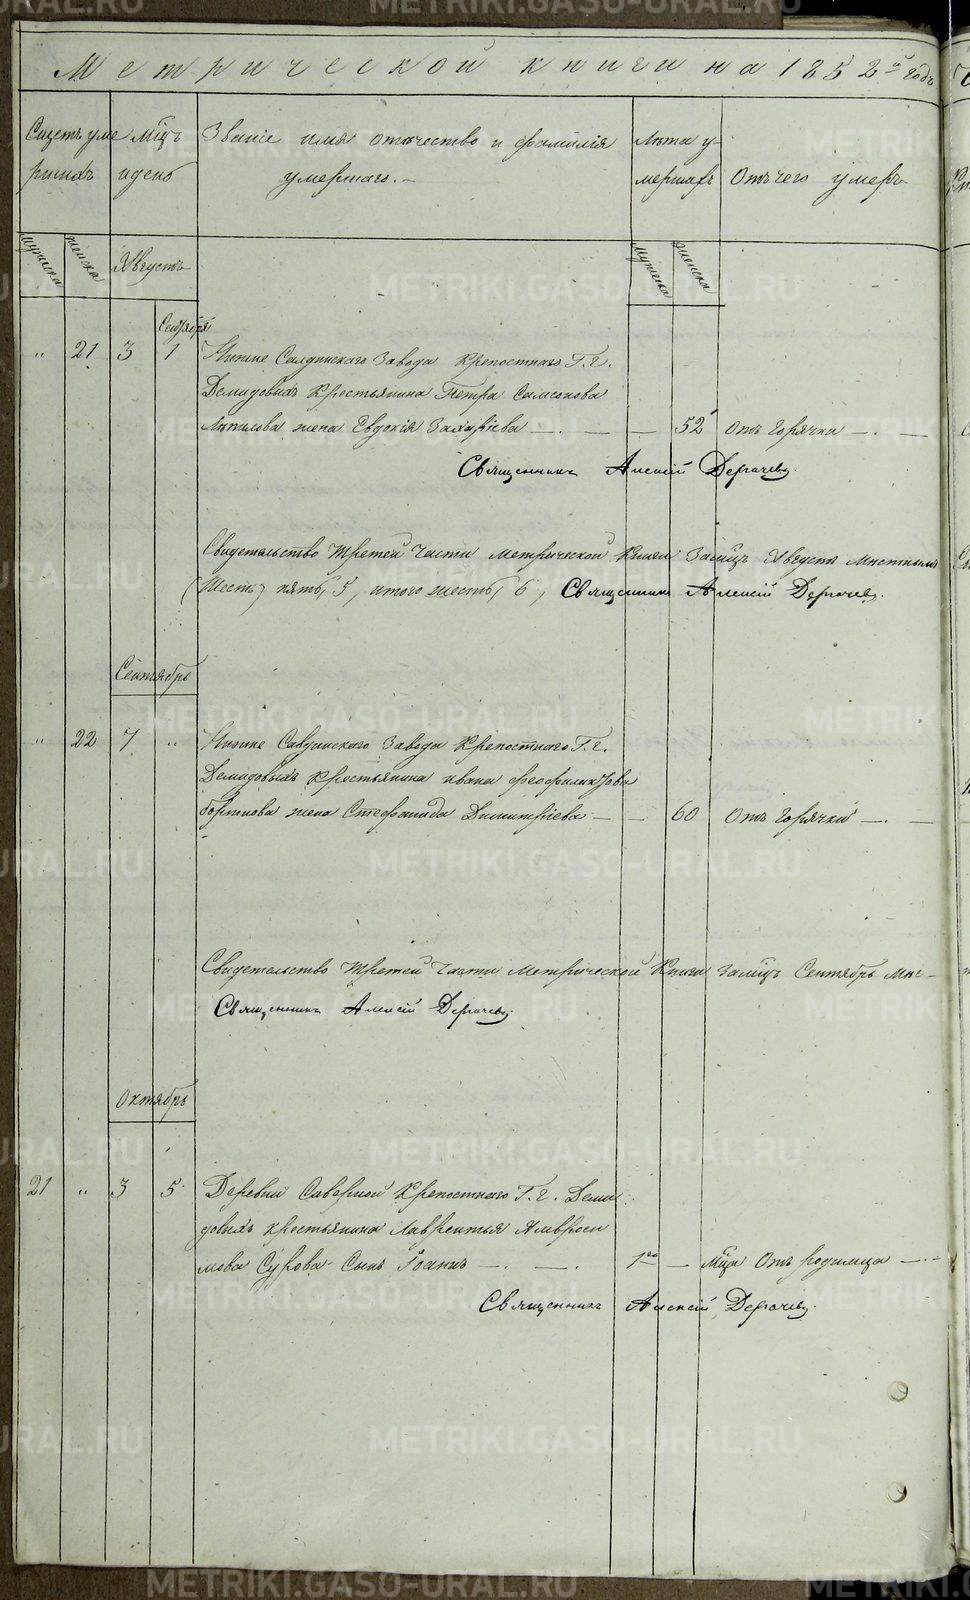 Метрической книги на 1852й годъ
Счетъ уме мцъ Званіе имя отечество и фамилія Лѣта у-
ршихъ и день умершаго.- мершихъ Отъ чего умеръ
мужеска женска Августъ мужеска женска
Сентября
" 21 3 1 Нижне Салдинскаго Завода Крепостнаго Г. г.
Демидовыхъ Крестьянина Петра Самсонова
жена Евдокія Захаріева — . — — 52 Отъ Горячки — . —
Священникъ Алексій Дерячевъ.
Свидетельство Третей Части Метрической Книги За мцъ Августъ
(Шесть) пять, 5, итого шесть, 6, Священникъ Алексій Дерячевъ.
Сентябрь
" 22 7 " Нижне Салдинскаго Завода Крепостнаго Г. г.
Демидовыхъ Крестьянина Ивана Феофилактова
жена Стефанида Димитріева — — 60 Отъ Горячки — . —
Свидетельство Третей Части Метрической Книги За мцъ Сентябрь
Священникъ Алексій Дерячевъ.
Октябрь
21 " 3 5 Деревни Северной Крепостнаго Г. г. Деми
довыхъ крестьянина Лаврентья Амвроси
мова Сурова Сынъ Іоаннъ — . — . 1го — Мца Отъ родимца — . -
Священникъ Алексій Дерячевъ.
METRIKI.GASO-URAL.RU